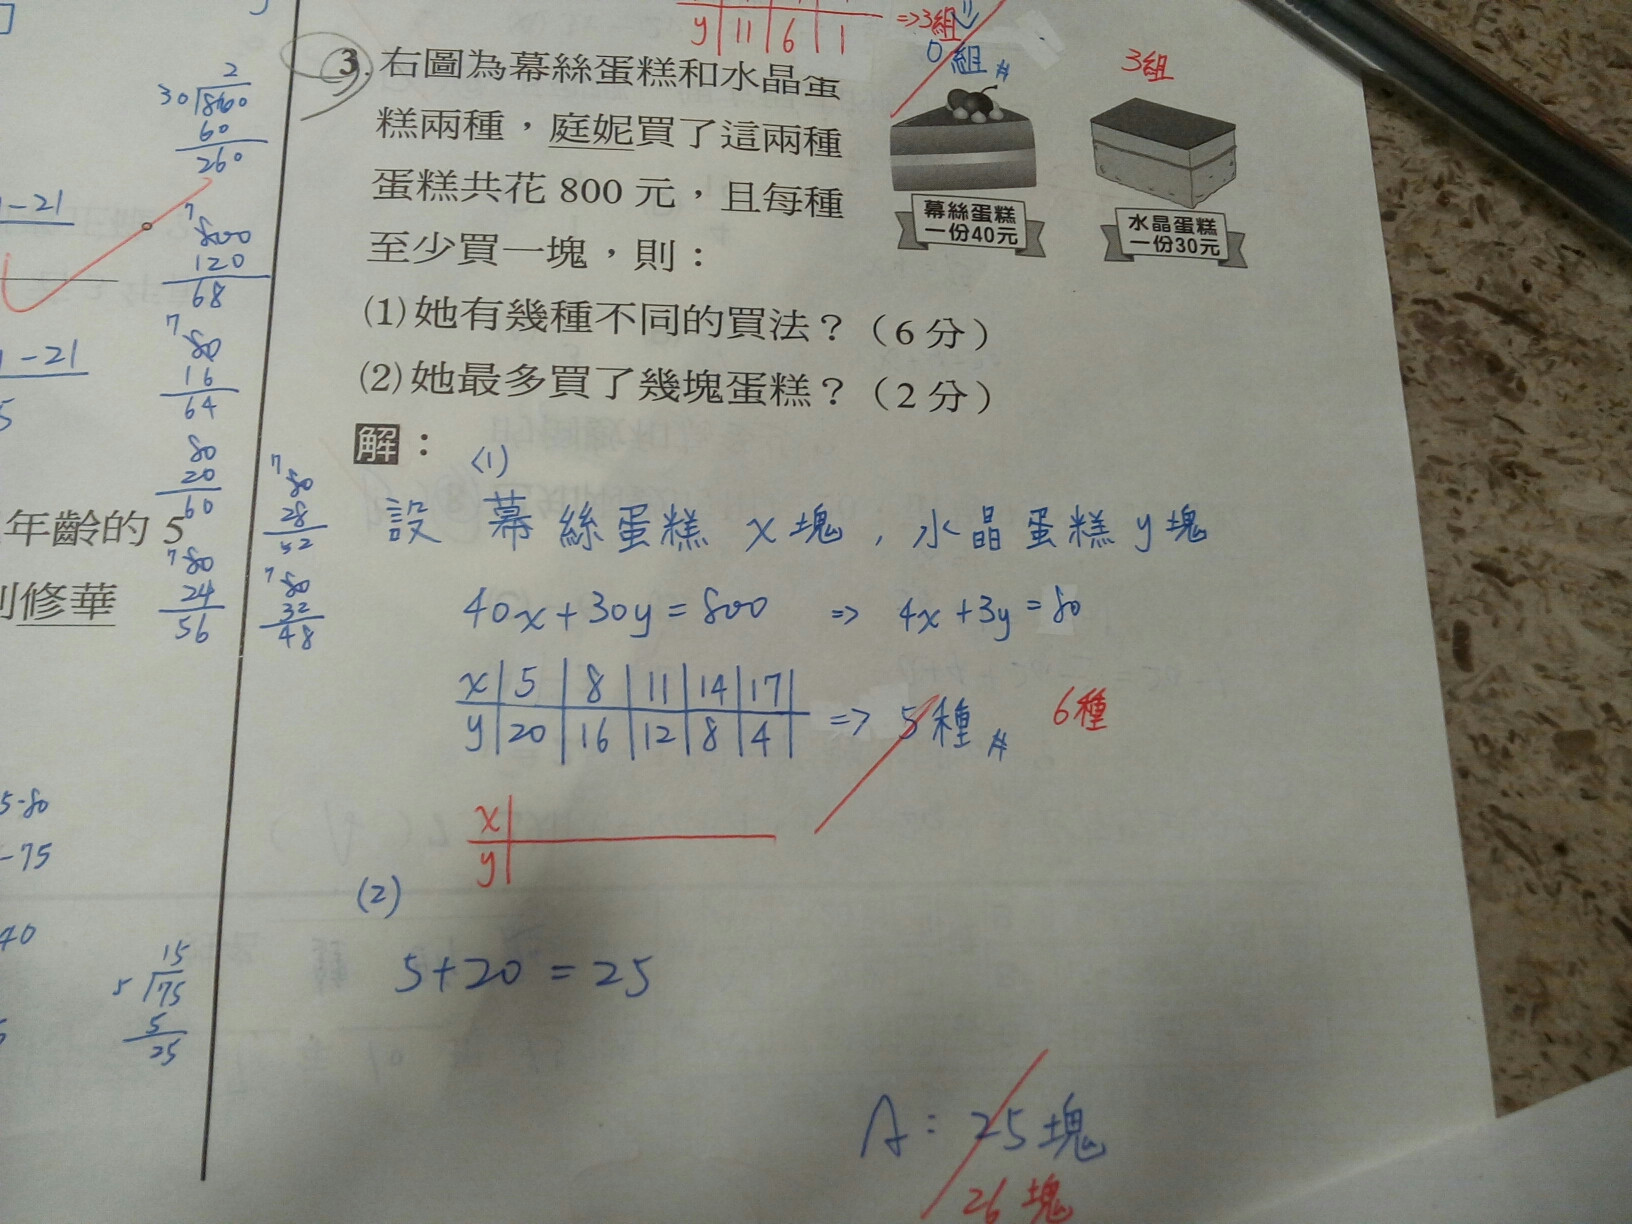 y 11 6 1 ⇒3組
0組
3組
3. 右圖為幕絲蛋糕和水晶蛋
糕兩種，庭妮買了這兩種
蛋糕共花 800 元，且每種
至少買一塊，則：
(1)她有幾種不同的買法？（6 分）
(2)她最多買了幾塊蛋糕？（2 分）
幕絲蛋糕
一份40元
水晶蛋糕
一份30元
解：
(1)
設 幕絲蛋糕 x塊，水晶蛋糕 y塊
40x+30y=800 ⇒ 4x+3y=80
x 5 8 11 14 17
y 20 16 12 8 4 ⇒ 5種 6種
x
y
(2)
5+20=25
A：25塊
26塊
2
30 860
60
260
7
800
120
68
7
80
16
64
80
20
60
7
80
24
56
7
80
28
52
7
80
32
48
-21
-21
年齡的 5
修華
5-80
-75
40
15
5 75
5
25